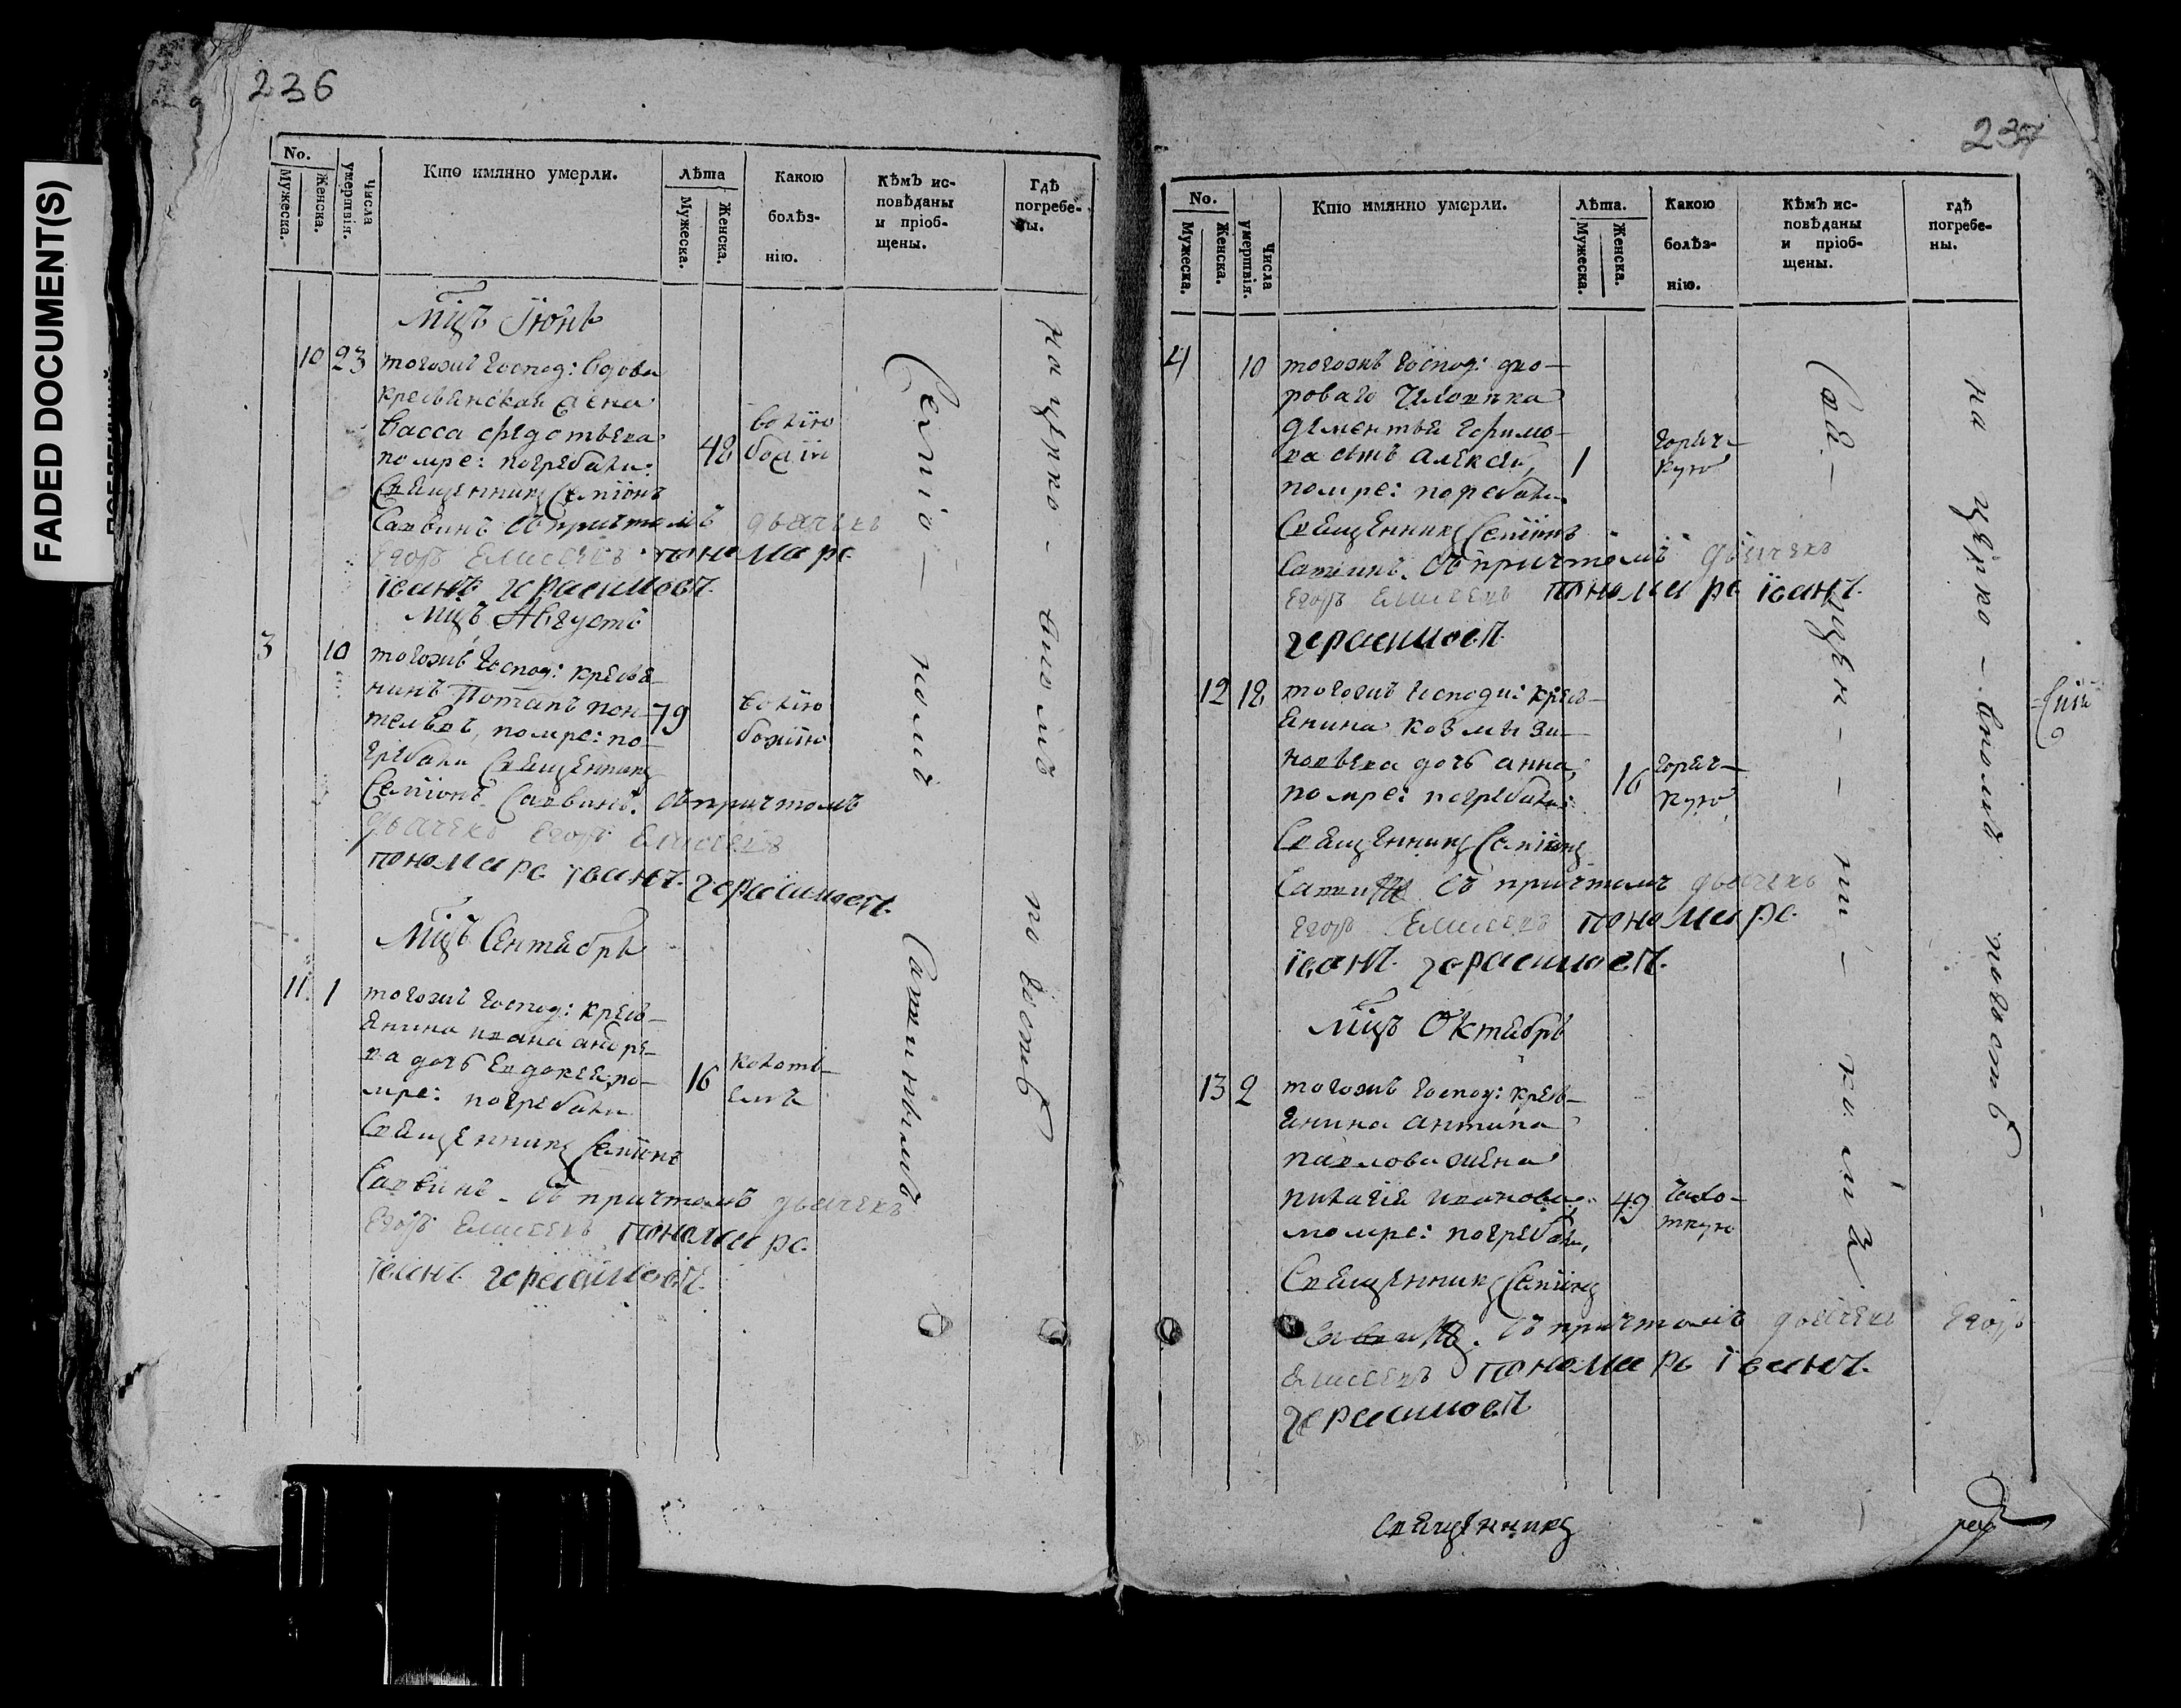 FADED DOCUMENT(S)
236
No.
Мужеска.
Женска.
Числа умертвія.
Кто имянно умерли.
Лѣта
Мужеска.
Женска.
Какою
болѣз-
нію.
Кѣмъ ис-
повѣданы
и пріоб-
щены.
Гдѣ
погребе-
ны.
Мцъ Іюнь
10 23 тогожъ господ: вдова
крестьянская жена
Васса Федотьева 48 волею
помре: погребали: божіею
Священникъ Семіонъ
Саввинъ съ причтомъ дьячекъ
Егоръ Елисеевъ пономарь
Іванъ Герасимовъ
Мцъ Августъ
3 10 тогожъ господ: крестья-
нинъ Потапъ Пан- 79 волею
телѣевъ, помре: по- божіею
гребали Священникъ
Семіонъ Саввинъ. съ причтомъ
дьячекъ Егоръ Елисеевъ
пономарь Іванъ Герасимовъ
Мцъ Сентябрь
11 1 тогожъ господ: кресть-
янина Ивана Андре-
ва дочь Евдокея, по- 16
мре: погребали
Священникъ Семіонъ
Саввинъ - съ причтомъ дьячекъ
Егоръ Елисеевъ пономарь
Іванъ Герасимовъ
Семіо- номъ Саввиновымъ
на церко- вномъ погостѣ
237
No.
Мужеска.
Женска.
Числа умертвія.
Кто имянно умерли.
Лѣта.
Мужеска.
Женска.
Какою
болѣз-
нію.
Кѣмъ ис-
повѣданы
и пріоб-
щены.
гдѣ
погребе-
ны.
4 10 тогожъ господ: дво-
роваго человека
Дементья Ефимо- горяч-
ва сынъ Алексей, 1 кую
помре: погребали
Священникъ Семіонъ
Саввинъ. съ причтомъ дьячекъ
Егоръ Елисеевъ пономарь Іванъ
Герасимовъ
12 18 тогожъ господи: кресть-
янина Козмы Зи-
новьева дочь Анна, 16 горяч-
помре: погребали: кую
Священникъ Семіонъ
Саввинъ съ причтомъ дьячекъ
Егоръ Елисеевъ пономарь
Іванъ Герасимовъ
Мцъ Октябрь
13 2 тогожъ господ: кресть-
янина Антипа
Павлова жена
Пилагія Иванова, 49 чахо-
помре: погребали, ткую
Священникъ Семіонъ
Саввинъ. съ причтомъ дьячекъ Егоръ
Елисеевъ пономарь Іванъ
Герасимовъ
на церко- вномъ погостѣ
Священникъ